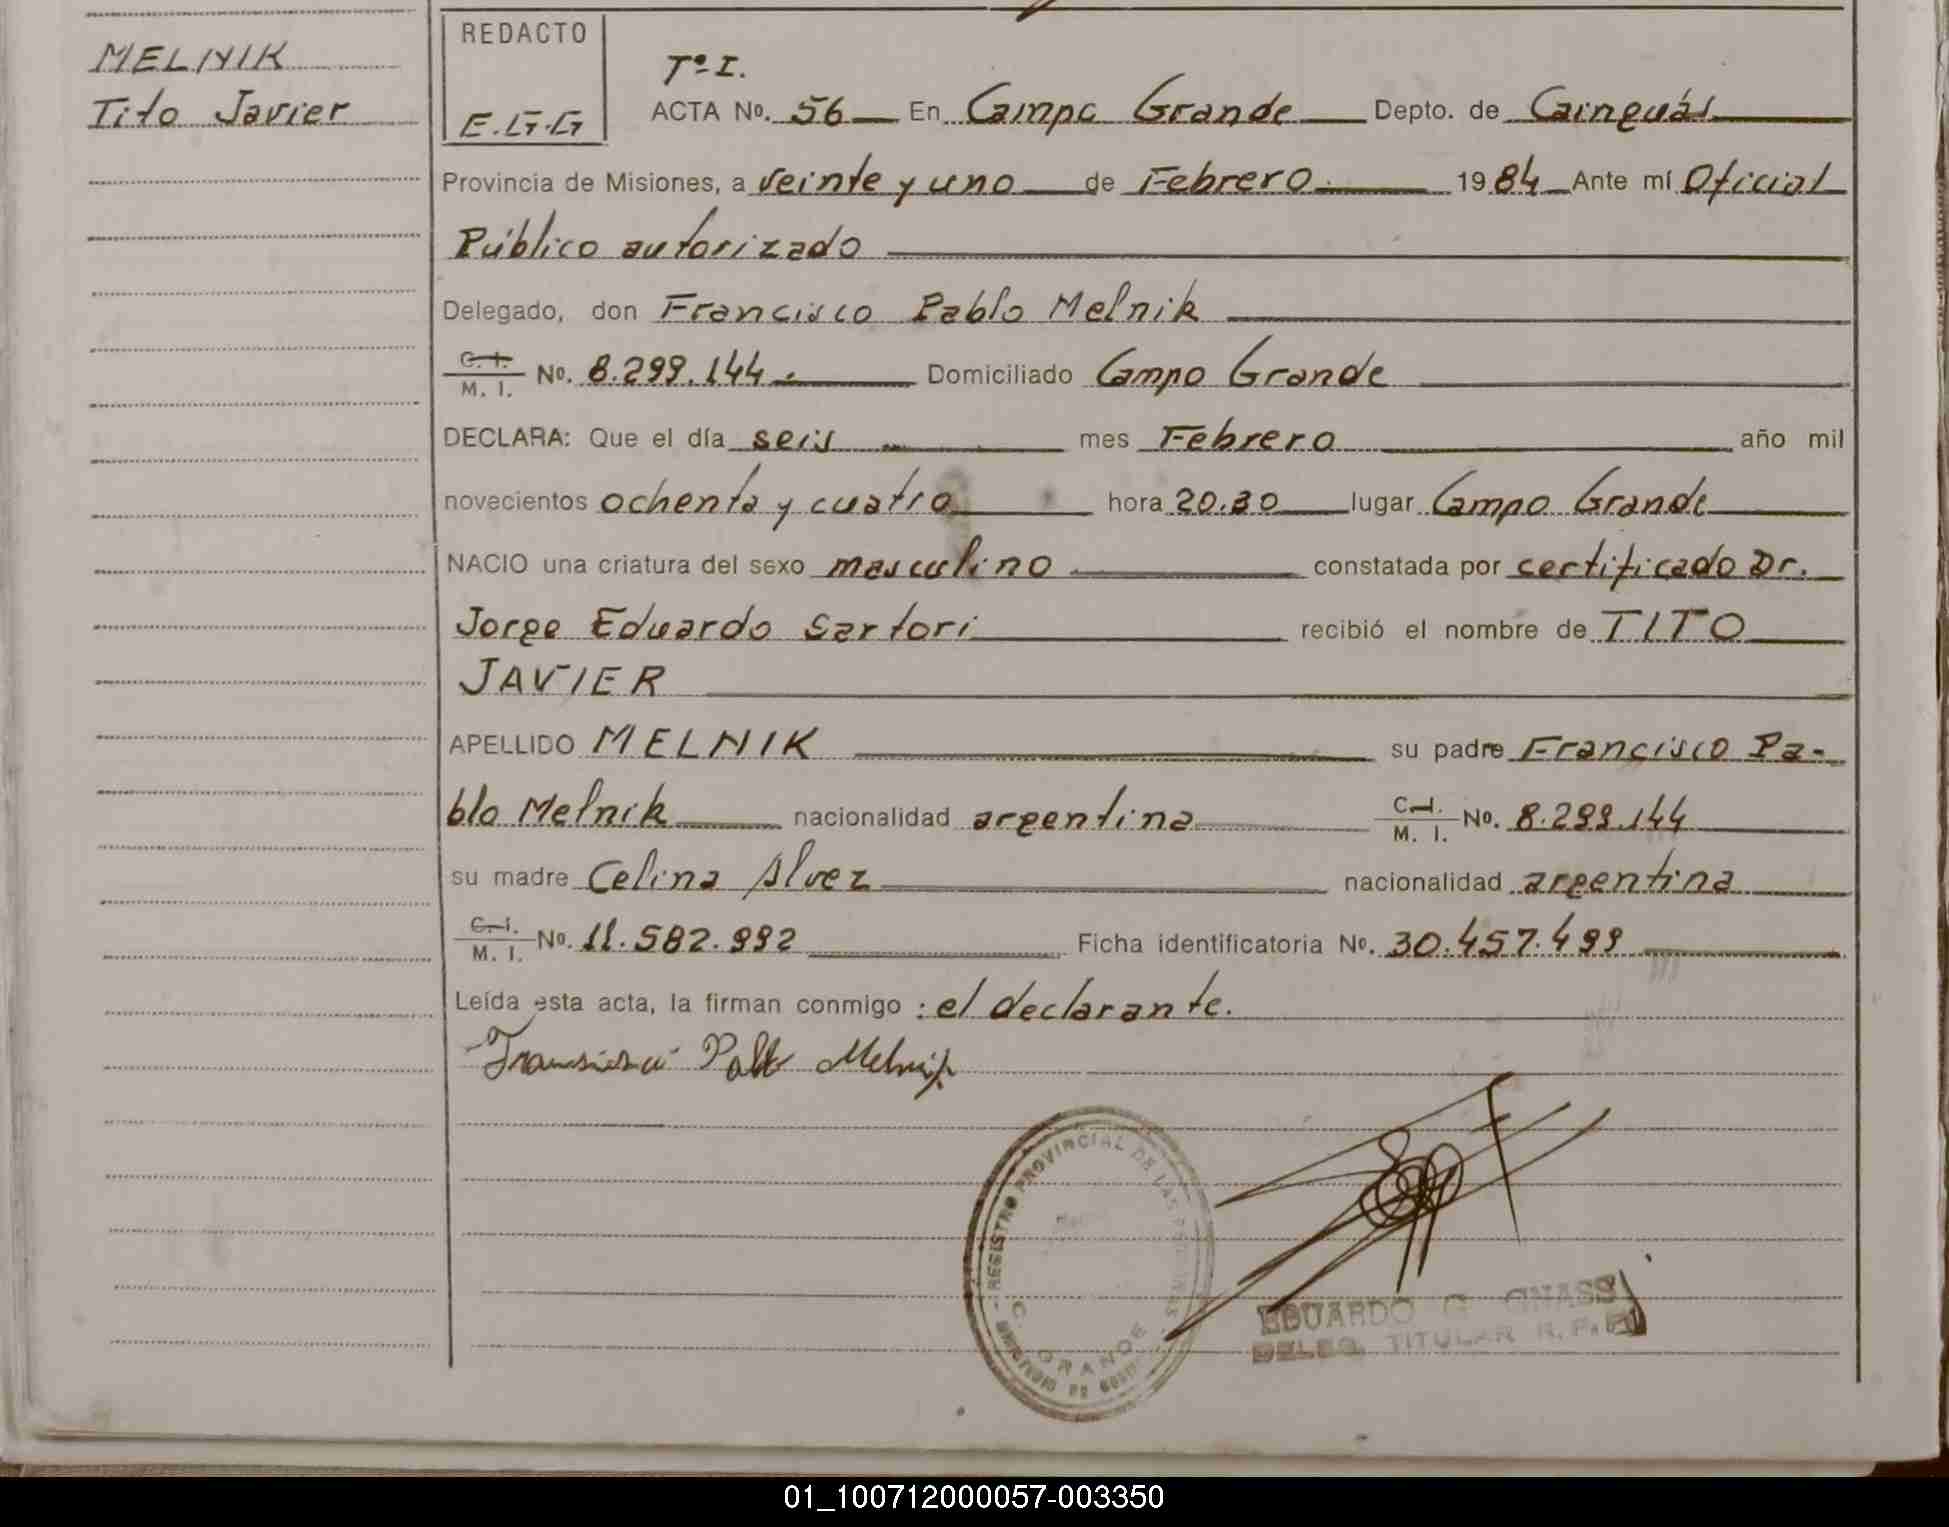 MELNIK
Tito Javier
REDACTO
E.G.G
Tº I.
ACTA No. 56 En Campo Grande Depto. de Cainguás
Provincia de Misiones, a veinte y uno de Febrero 1984 Ante mí Oficial
Público autorizado
Delegado, don Francisco Pablo Melnik
C. I.
M. I. No. 8.299.144. Domiciliado Campo Grande
DECLARA: Que el día seis mes Febrero año mil
novecientos ochenta y cuatro hora 20.30 lugar Campo Grande
NACIO una criatura del sexo masculino constatada por certificado Dr.
Jorge Eduardo Sartori recibió el nombre de TITO
JAVIER
APELLIDO MELNIK su padre Francisco Pa-
blo Melnik nacionalidad argentina C. I. M. I. No. 8.299.144
su madre Celina Alvez nacionalidad argentina
C. I.
M. I. No. 11.582.992 Ficha identificatoria No. 30.457.499
Leída esta acta, la firman conmigo : el declarante.
Francisco Pablo Melnik
REGISTRO PROVINCIAL DE LAS PERSONAS
C. GRANDE
MINISTERIO DE GOBIERNO
EDUARDO G. GNASS
DELEG. TITULAR R. P. P.
01_100712000057-003350